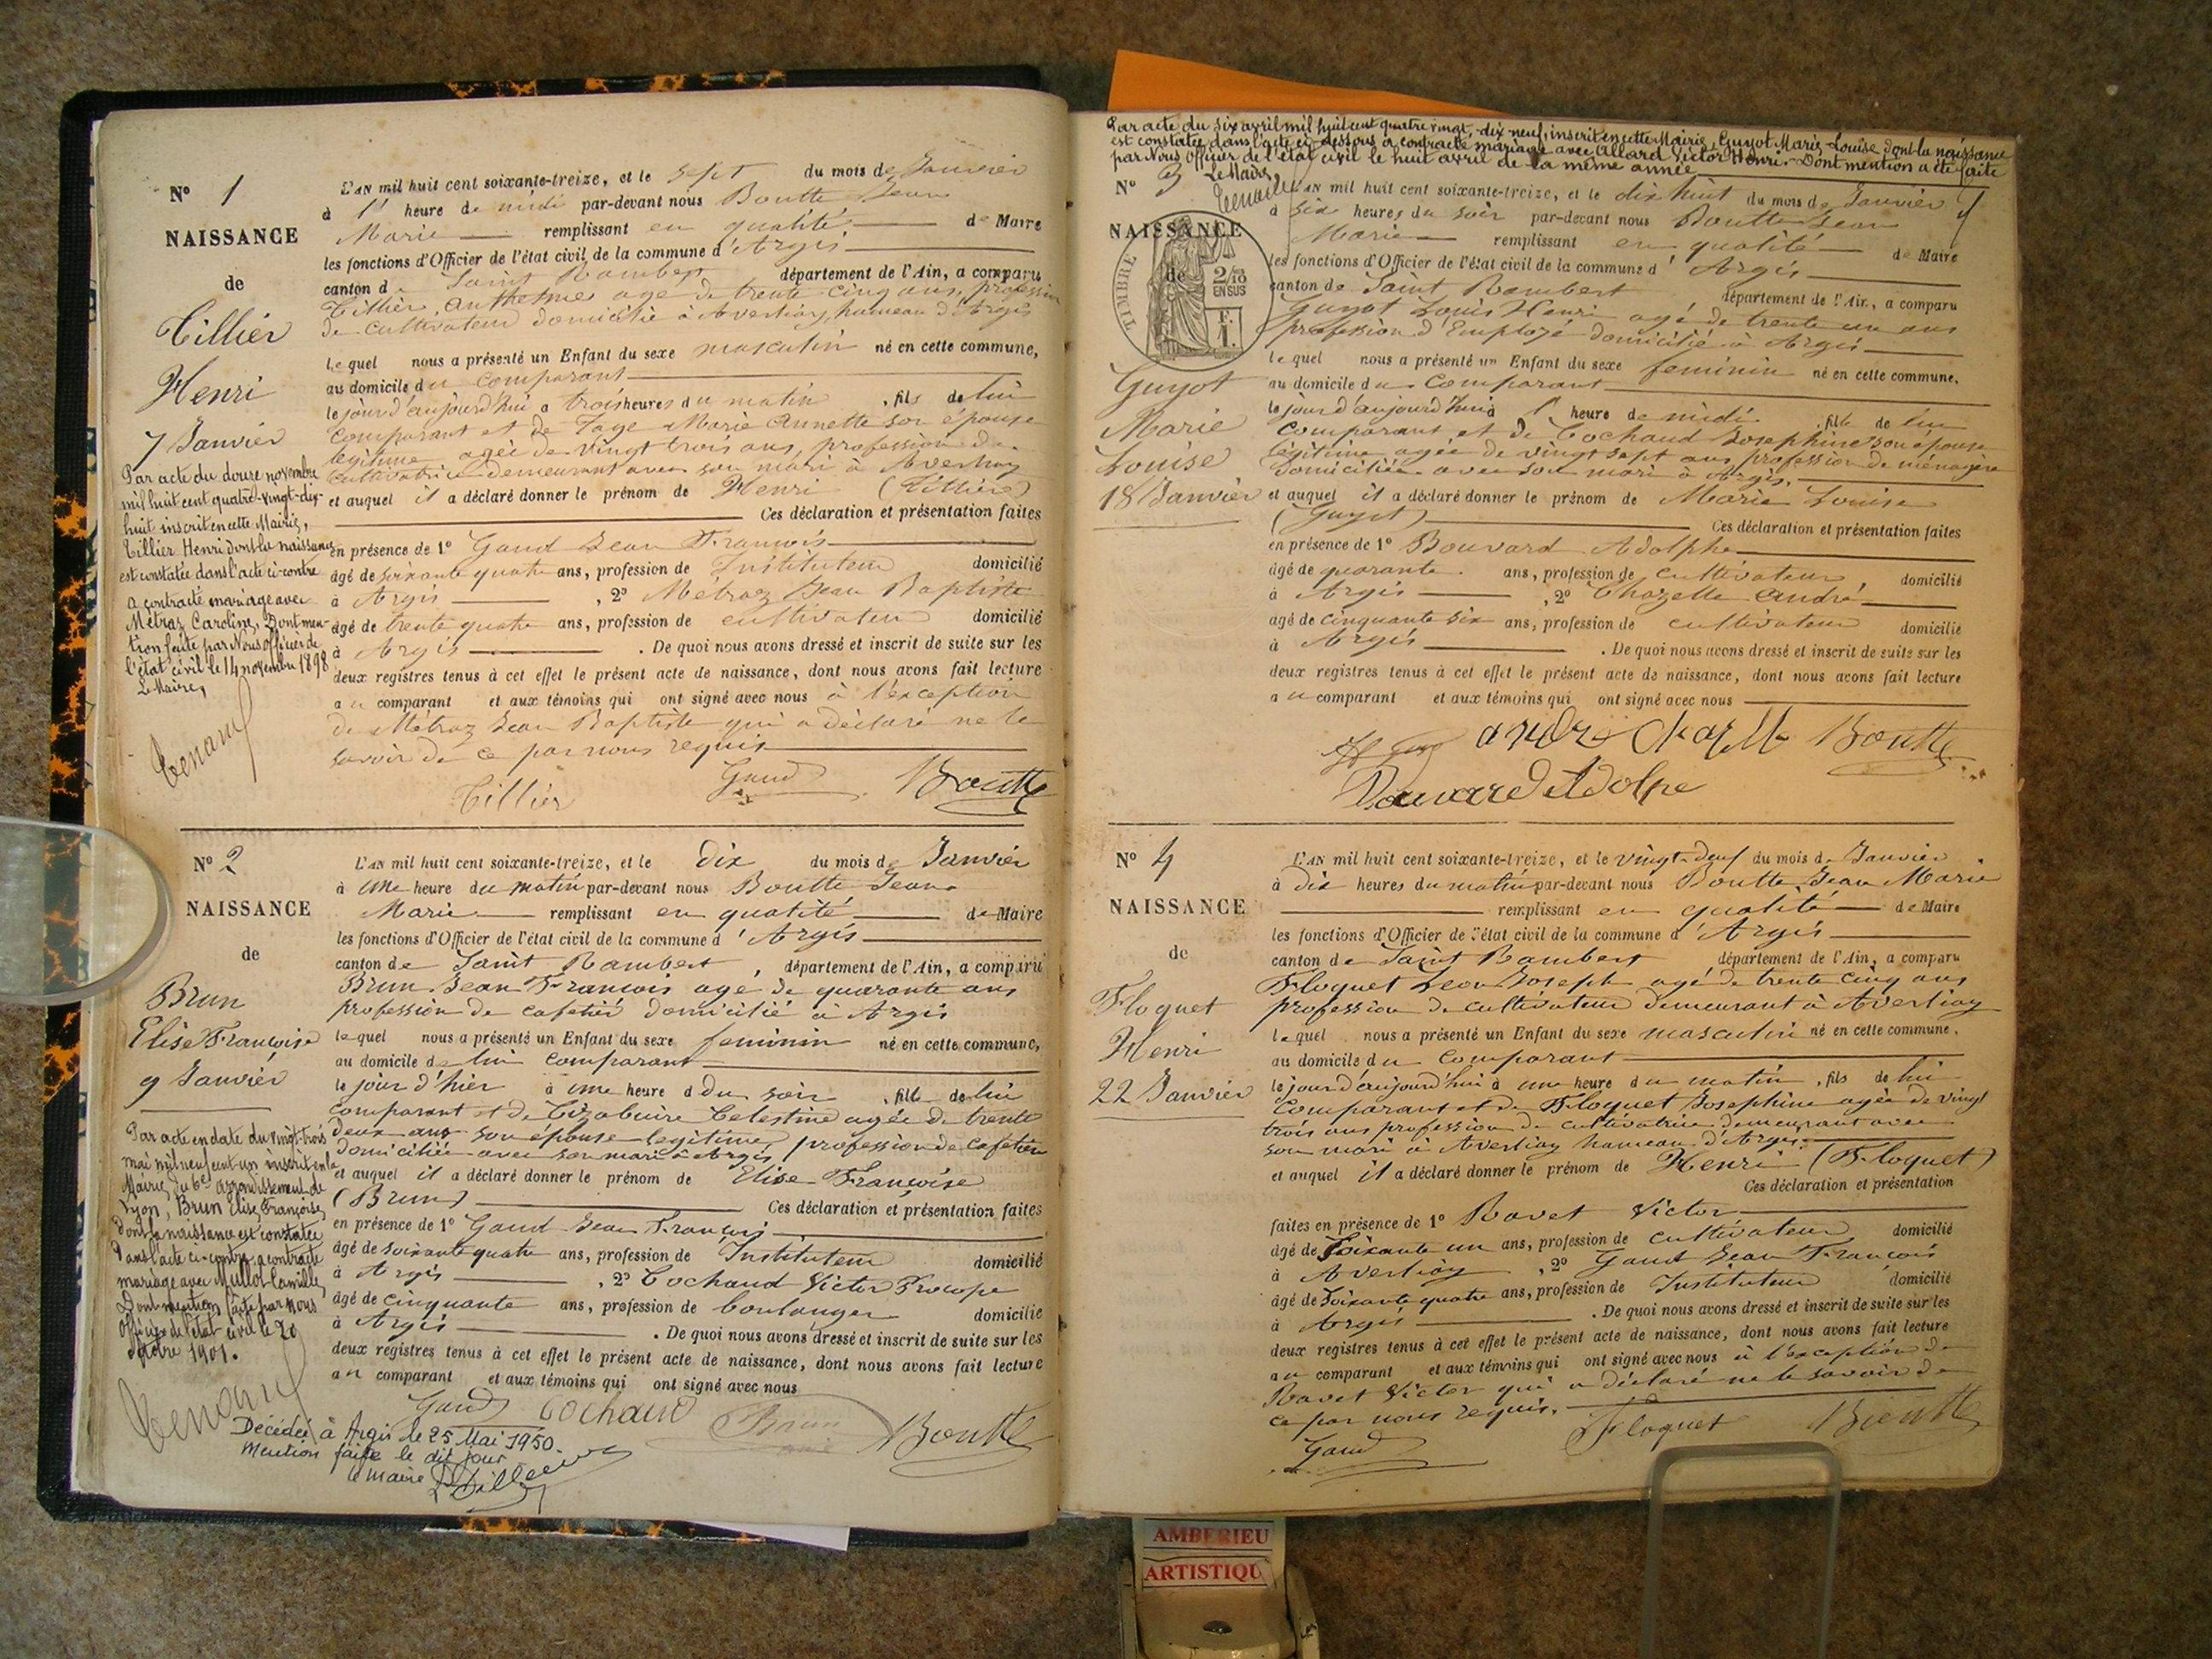 Nº 1
NAISSANCE
de
Tillier
Henri
7 Janvier
Par acte du douze novembre
mil huit cent quatre-vingt-dix-
huit inscrit en cette Mairie,
Tillier Henri dont la naissance
est constatée dans l'acte ci-contre
a contracté mariage avec
Métraz Caroline, Dont men-
tion faite par Nous officier de
l'état civil le 14 novembre 1898
Le Maire,
L'AN mil huit cent soixante-treize, et le sept du mois de Janvier
à 1' heure de midi par-devant nous Boutte Jean
Marie remplissant en qualité de Maire
les fonctions d'Officier de l'état civil de la commune d'Argis
canton de Saint Rambert département de l'Ain, a comparu
Tillier, Anthelme age de trente cinq ans, profession
de cultivateur domicilié à Averliay, hameau d'Argis
lequel nous a présenté un Enfant du sexe masculin né en cette commune,
au domicile du comparant
le jour d'aujourd'hui a trois heures du matin, fils de lui
comparant et de Page Marie Annette son épouse
legitime agée de vingt trois ans, profession de
cultivatrice demeurant avec son mari à Averliay
et auquel il a déclaré donner le prénom de Henri (Tillier)
Ces déclaration et présentation faites
en présence de 1º Gaud Jean François
âgé de soixante quatre ans, profession de Instituteur domicilié
à Argis, 2º Métraz Jean Baptiste
âgé de trente quatre ans, profession de cultivateur domicilié
à Argis. De quoi nous avons dressé et inscrit de suite sur les
deux registres tenus à cet effet le présent acte de naissance, dont nous avons fait lecture
au comparant et aux témoins qui ont signé avec nous à l'exception
de Métraz Jean Baptiste qui a déclaré ne le
savoir de ce par nous requis
Tillier Gaud Boutte
Nº 2
NAISSANCE
de
Brun
Elise Françoise
9 Janvier
Par acte en date du vingt-trois
mai mil neuf cent un inscrit en la
Mairie du 6e arrondissement de
Lyon, Brun Elise Françoise
dont la naissance est constatée
dans l'acte ci-contre a contracté
mariage avec Mullot Camille,
Dont mention faite par nous
officier de l'état civil le 20
octobre 1901.
L'AN mil huit cent soixante-treize, et le dix du mois de Janvier
à une heure du matin par-devant nous Boutte Jean
Marie remplissant en qualité de Maire
les fonctions d'Officier de l'état civil de la commune d'Argis
canton de Saint Rambert, département de l'Ain, a comparu
Brun Jean François age de quarante ans
profession de cafetier domicilié à Argis
lequel nous a présenté un Enfant du sexe feminin né en cette commune,
au domicile de lui comparant
le jour d'hier à une heure d du soir, fille de lui
comparant et de Celestine agée de trente
deux ans son épouse legitime, profession de cafetier
domiciliée avec son mari à Argis
et auquel il a déclaré donner le prénom de Elise Françoise
(Brun) Ces déclaration et présentation faites
en présence de 1º Gaud Jean François
âgé de soixante quatre ans, profession de Instituteur domicilié
à Argis, 2º Cochaud Victor Procope
âgé de cinquante ans, profession de boulanger domicilié
à Argis. De quoi nous avons dressé et inscrit de suite sur les
deux registres tenus à cet effet le présent acte de naissance, dont nous avons fait lecture
au comparant et aux témoins qui ont signé avec nous
Gaud Cochaud Brun Boutte
Décédée à Argis le 25 Mai 1950.
Mention faite le dit jour
le maire
Par acte du six avril mil huit cent quatre vingt-dix-neuf, inscrit en cette Mairie, Guyot Marie-Louise dont la naissance
est constatée dans l'acte ci-dessous a contracté mariage avec Allard Victor Henri. Dont mention a été faite
par Nous Officier de l'état civil le huit avril de la même année
Le Maire,
Nº 3
NAISSANCE
de
TIMBRE
2/10
EN SUS
F.
1.
Guyot
Marie
Louise
18 Janvier
L'AN mil huit cent soixante-treize, et le dix huit du mois de Janvier
à six heures du soir par-devant nous Boutte Jean
Marie remplissant en qualité de Maire
les fonctions d'Officier de l'état civil de la commune d'Argis
canton de Saint Rambert département de l'Ain, a comparu
Guyot Louis Henri agé de trente un ans
profession d'Employé domicilié à Argis
lequel nous a présenté un Enfant du sexe feminin né en cette commune.
au domicile du comparant
le jour d'aujourd'hui à 1' heure de midi fille de lui
comparant et de Cochaud Josephine son épouse
légitime agée de vingt sept ans profession de ménagère
domiciliée avec son mari à Argis.
et auquel il a déclaré donner le prénom de Marie Louise
(Guyot) Ces déclaration et présentation faites
en présence de 1º Bouvard Adolphe
âgé de quarante ans, profession de cultivateur, domicilié
à Argis, 2º Chazelle André
âgé de cinquante six ans, profession de cultivateur domicilié
à Argis. De quoi nous avons dressé et inscrit de suite sur les
deux registres tenus à cet effet le présent acte de naissance, dont nous avons fait lecture
au comparant et aux témoins qui ont signé avec nous
Boutte
Nº 4
NAISSANCE
de
Floquet
Henri
22 Janvier
L'AN mil huit cent soixante-treize, et le vingt-deux du mois de Janvier
à dix heures du matin par-devant nous Boutte Jean Marie
remplissant en qualité de Maire
les fonctions d'Officier de l'état civil de la commune d'Argis
canton de Saint Rambert département de l'Ain, a comparu
Floquet Leon Joseph agé de trente cinq ans
profession de cultivateur demeurant à Averliay
lequel nous a présenté un Enfant du sexe masculin né en cette commune.
au domicile du comparant
le jour d'aujourd'hui à une heure du matin, fils de lui
comparant et de Floquet Josephine agée de vingt
trois ans profession de cultivatrice demeurant avec
son mari à Averliay hameau d'Argis.
et auquel il a déclaré donner le prénom de Henri (Floquet)
Ces déclaration et présentation
faites en présence de 1º Ravet Victor
âgé de Soixante un ans, profession de cultivateur domicilié
à Averliay, 2º Gaud Jean François
âgé de Soixante quatre ans, profession de Instituteur domicilié
à Argis. De quoi nous avons dressé et inscrit de suite sur les
deux registres tenus à cet effet le présent acte de naissance, dont nous avons fait lecture
au comparant et aux témoins qui ont signé avec nous à l'exception de
Ravet Victor qui a déclaré ne le savoir de
ce par nous requis.
Gaud Floquet Boutte
AMBERIEU
ARTISTIQU